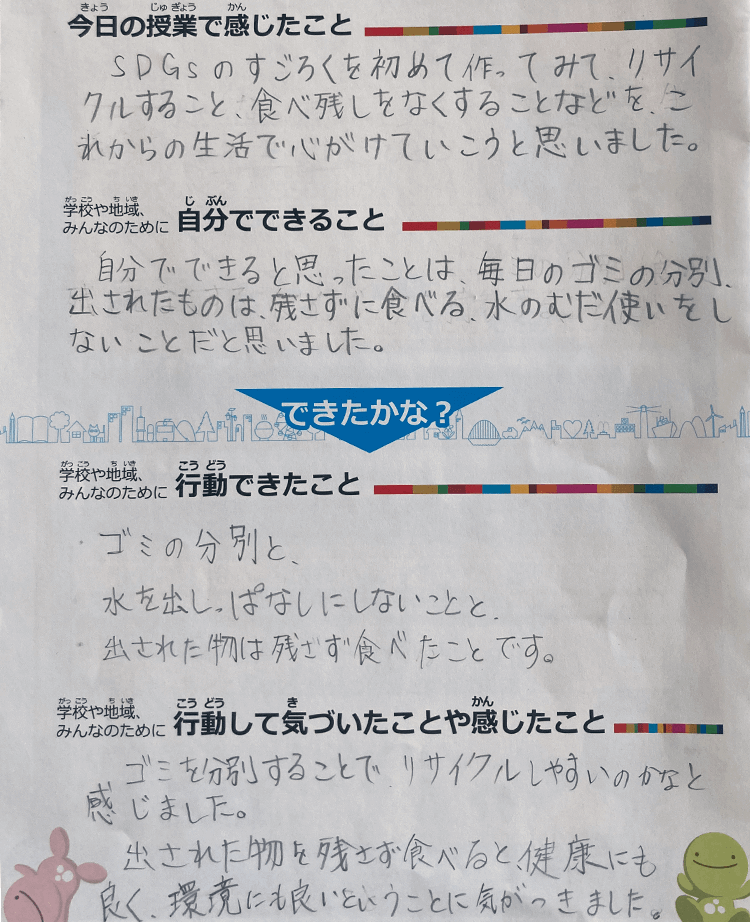 きょう じゅぎょう かん
今日の授業で感じたこと
SDGsのすごろくを初めて作ってみて、リサイ
クルすること、食べ残しをなくすることなどを、こ
れからの生活で心がけていこうと思いました。
がっこう ちいき
学校や地域、
みんなのために
じぶん
自分でできること
自分でできると思ったことは、毎日のゴミの分別、
出されたものは、残さずに食べる、水のむだ使いをし
ないことだと思いました。
できたかな？
がっこう ちいき
学校や地域、
みんなのために
こうどう
行動できたこと
ゴミの分別と、
水を出しっぱなしにしないことと、
出された物は残さず食べたことです。
がっこう ちいき
学校や地域、
みんなのために
こうどう き かん
行動して気づいたことや感じたこと
ゴミを分別することで、リサイクルしやすいのかなと
感じました。
出された物を残さず食べると、健康にも
良く、環境にも良いということに気がつきました。